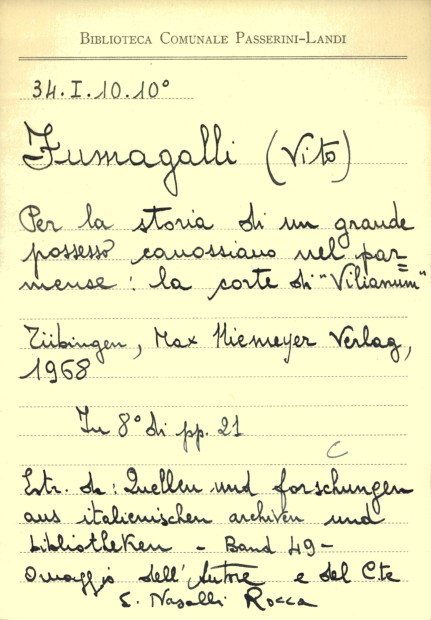 BIBLIOTECA COMUNALE PASSERINI-LANDI
34.I.10.10°
Fumagalli (Vito)
Per la storia di un grande
possesso canossiano nel par=
mense: la corte di "Vilianum"
Tübingen, Max Niemeyer Verlag,
1968
In 8° di pp. 21
C
Estr. da: Quellen und forschungen
aus italienischen archiven und
bibliotheken - Band 49-
Omaggio dell'Autore e del C.te
E. Nasalli Rocca